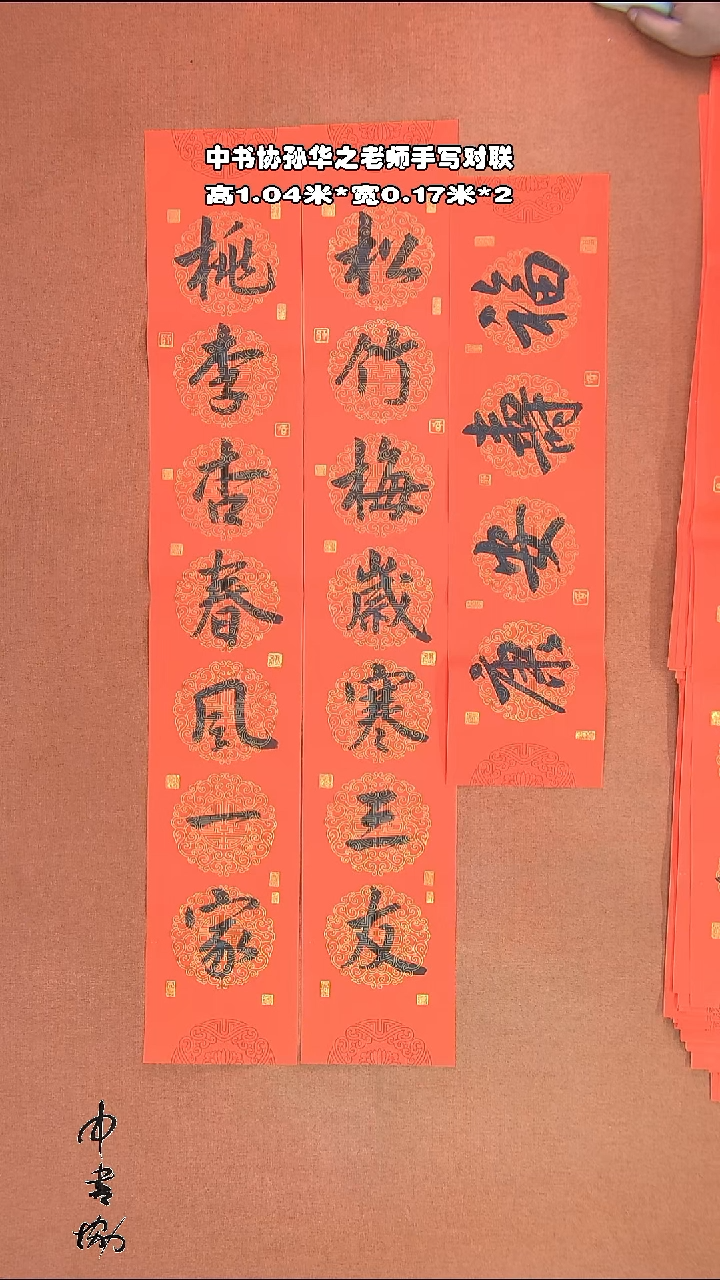 中书协孙华之老师手写对联
高1.04米*宽0.17米*2
松竹梅歲寒三友
桃李杏春風一家
福壽安康
中書協